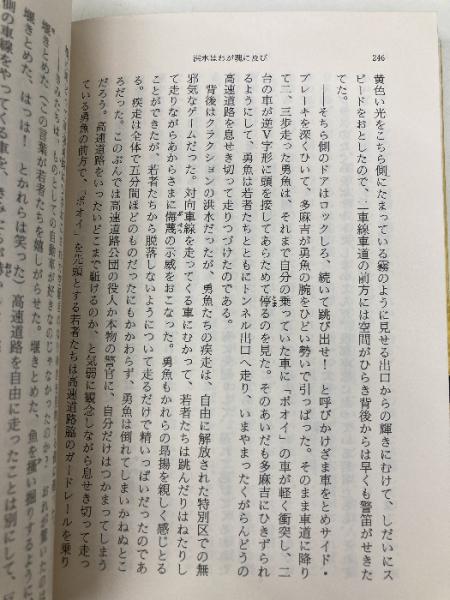 洪水はわが魂に及び
246
黄色い光をこちら側にたまっている霧のように見せる出口からの輝きにむけて、しだいにス
ピードをおとしたので、二車線車道の前方には空間がひらき背後からは早くも警笛がせきた
てた。
――そちら側のドアはロックしろ、続いて跳び出せ！　と呼びかけざま車をとめサイド・
ブレーキを深くひいて、多麻吉が勇魚の腕をひどい勢いで引っぱった。そのまま車道に降り
て二、三歩走った勇魚は、それまで自分の乗っていた車に「ボオイ」の車が軽く衝突し、二
台の車が逆V字形に頭を接してあらためて停るのを見た。そのあいだも多麻吉にひきずられ
るようにして、勇魚は若者たちとともにトンネル出口へ走り、いまやまったくがらんどうの
高速道路を息せき切って走りつづけたのである。
背後はクラクションの洪水だったが、勇魚たちの疾走は、自由に解放された特別区での無
邪気なゲームだった。対向車線を走ってくる車にむかって、若者たちは跳んだりはねたりし
て走りながらあからさまに侮蔑の示威をおこなった。勇魚もかれらの昂揚を親しく感じとる
ことができたが、若者たちから脱落しないようについて走るだけで精いっぱいだったのであ
る。疾走は全体で五分間ほどのものだったにもかかわらず、勇魚は倒れてしまいかねぬとこ
ろだった。このぶんでは高速道路公団の役人か本物の警官に、自分だけはつかまってしまう
だろう。高速道路をいったいどこまで駈けるのか、と気弱に観念しながら息せき切って走っ
ている勇魚の前方で、「ボオイ」を先頭とする若者たちは高速道路脇のガードレールを乗り
堰きとめた、はつは！　とかれらは笑った）高速道路を自由に走ったことは別にして、
側の車線をやってくる車を、